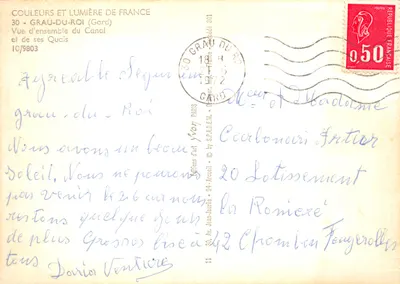 COULEURS ET LUMIÈRE DE FRANCE
30 - GRAU-DU-ROI (Gard)
Vue d'ensemble du Canal
et de ses Quais
10/9803
30 GRAU DU ROI
GARD
0,50
Agréable séjour
grau-du-Roi
Nous avons un beau
soleil. Nous ne pouvons
pas venir le 26 car nous
restons quelque jours
de plus Grosses bise à
tous Dario Venture
Mme et Madame
Carbonari
20 Lotissement
la Romière
42 Chambon Feugerolles